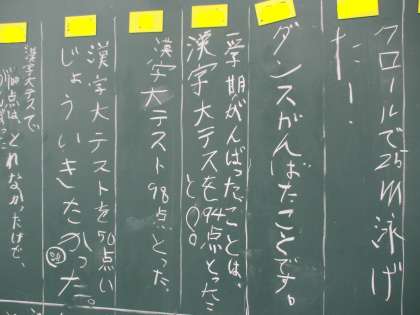 クロールで25m泳げ
た!
ダンスがんばたことです。
一学期がんばったことは、
漢字大テスを94点とったこ
と。
漢字大テスト98点とった。
漢字大テストを50点い
じょういきたかった。
漢字大テスで、
100点は、とれなかたけど、